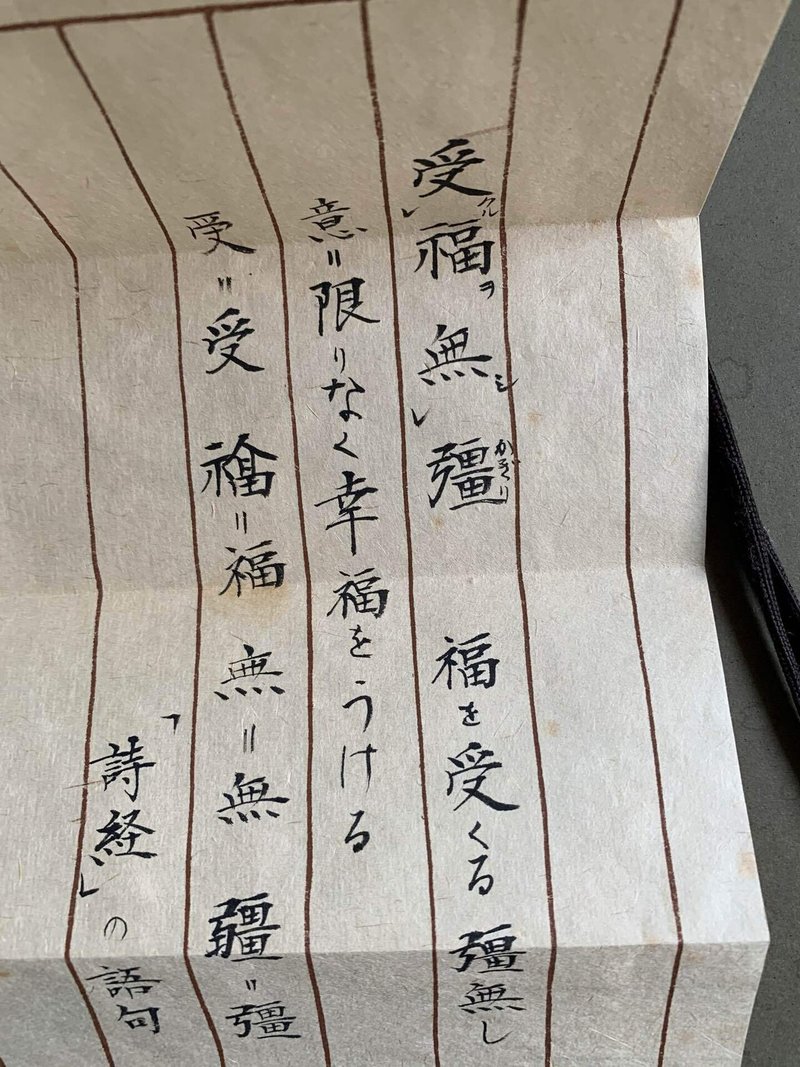 受クルレ福ヲ無シレ彊かぎり 福を受くる 彊無し
意=限りなく幸福をうける
受=受 福=福 無=無 疆=彊
「詩経」の語句